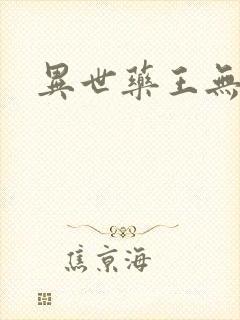 異世藥王無
焦京海